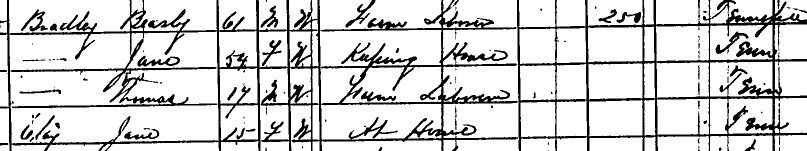 Bradley Beasly 61 M W Farm Laborer 250 Tennessee
— Jane 54 F W Keeping House Tenn
— Thomas 17 M W Farm Laborer Tenn
Clay Jane 15 F W At Home Tenn